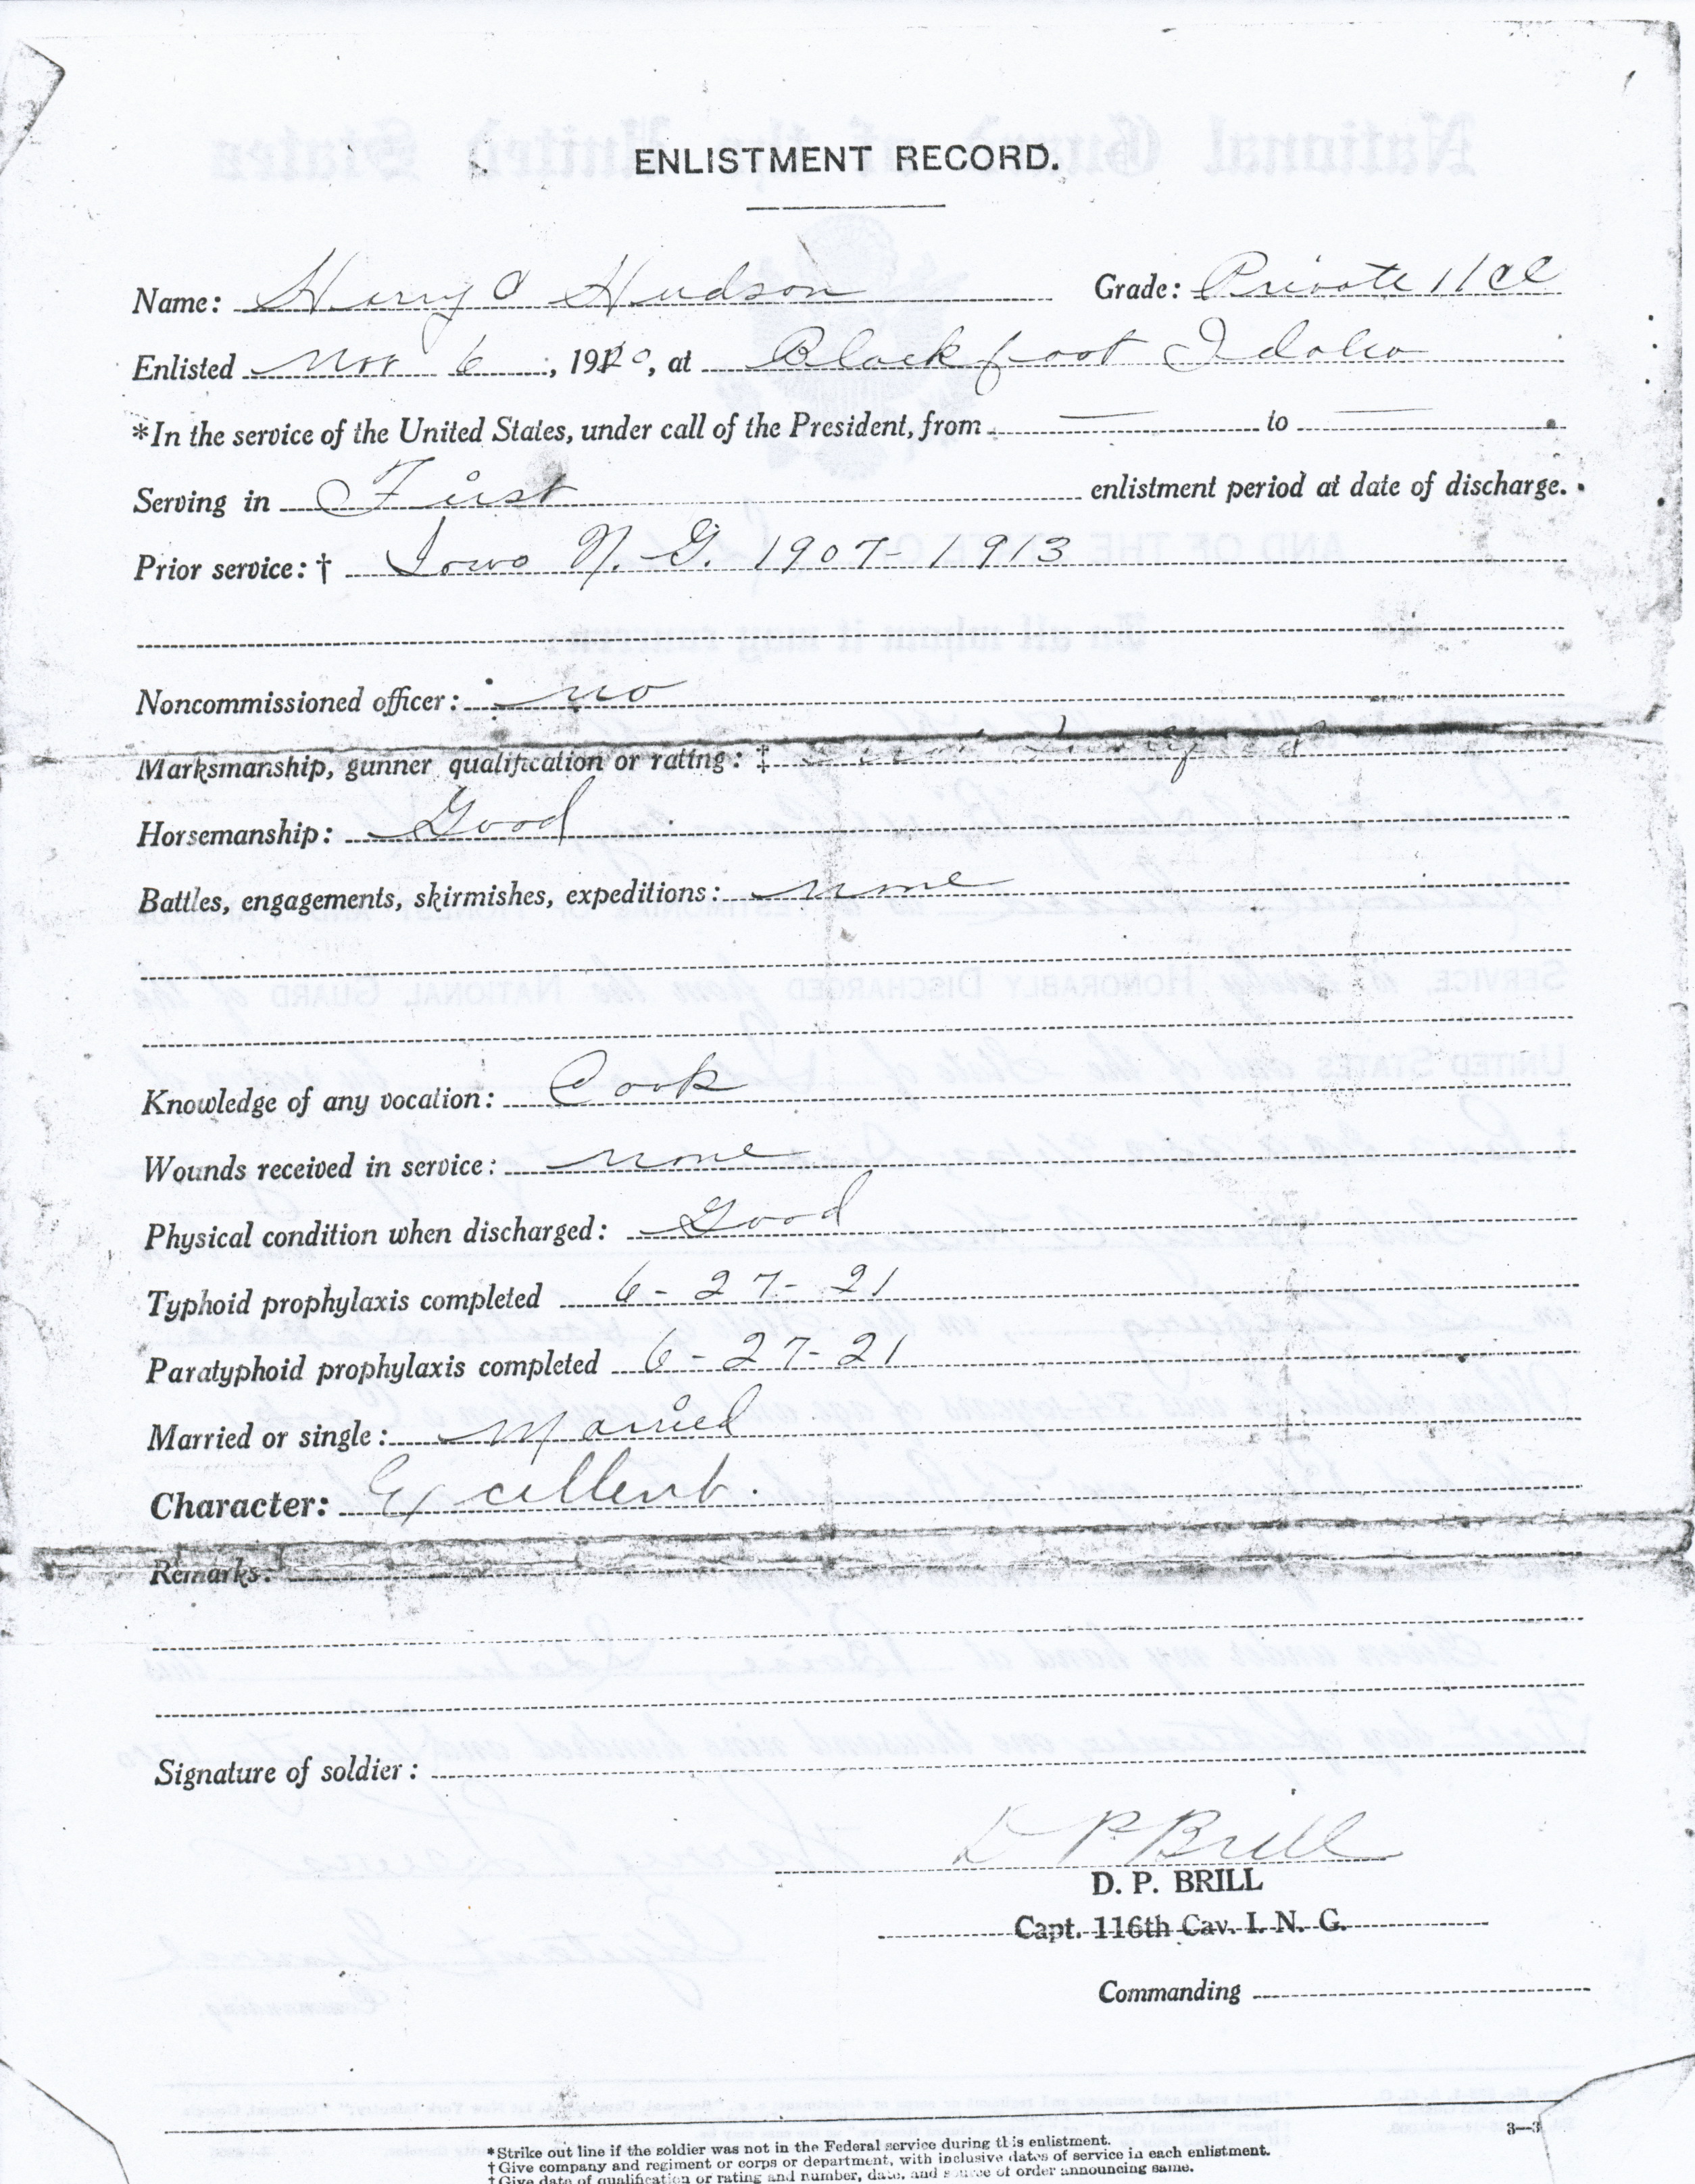 ENLISTMENT RECORD.
Name: Harry C Hudson Grade: Private 1/Cl
Enlisted Nov 6, 1920, at Blackfoot Idaho
*In the service of the United States, under call of the President, from — to —
Serving in First enlistment period at date of discharge.
Prior service: † Iowa N. G. 1907-1913
Noncommissioned officer: no
Marksmanship, gunner qualification or rating: ‡
Horsemanship: Good
Battles, engagements, skirmishes, expeditions: none
Knowledge of any vocation: Cook
Wounds received in service: none
Physical condition when discharged: Good
Typhoid prophylaxis completed 6-27-21
Paratyphoid prophylaxis completed 6-27-21
Married or single: Married
Character: Excellent.
Remarks:
Signature of soldier:
D P Brill
D. P. BRILL
Capt. 116th Cav. I. N. G.
Commanding
3—3
*Strike out line if the soldier was not in the Federal service during this enlistment.
†Give company and regiment or corps or department, with inclusive dates of service in each enlistment.
‡Give date of qualification or rating and number, date, and source of order announcing same.